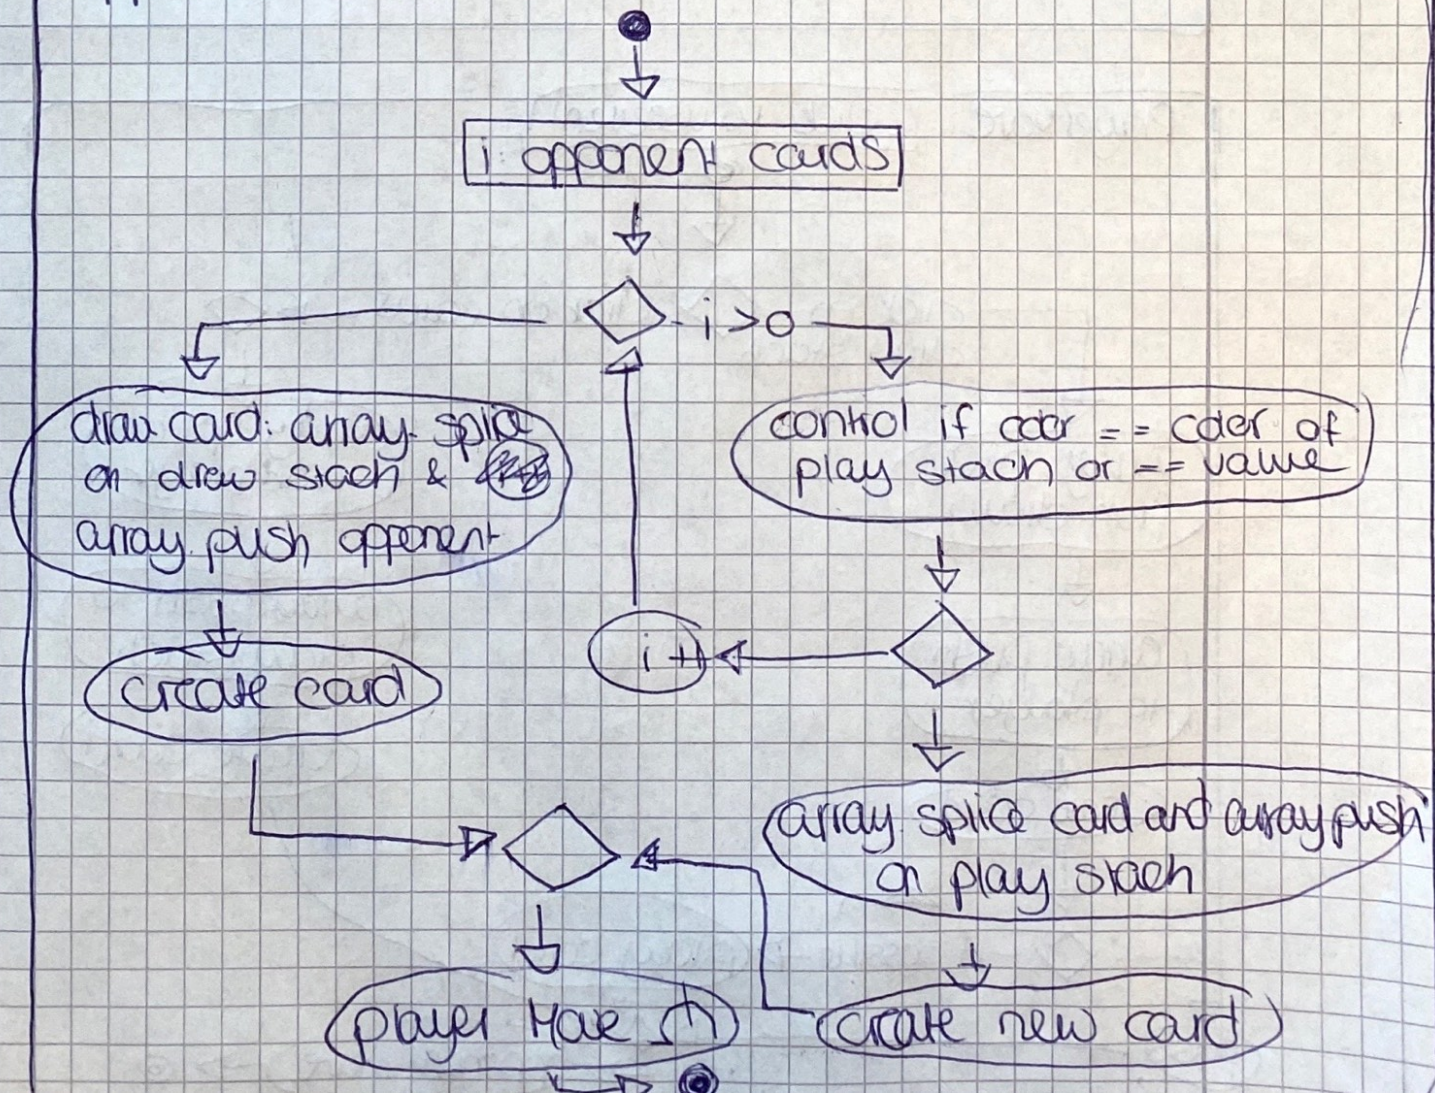 i: opponent cards
i > 0
draw card: array. splice
on draw stach &
array. push opponent
control if color == coler of
play stach or == value
create card
i++
array. splice card and array push
on play stach
player Move
create new card